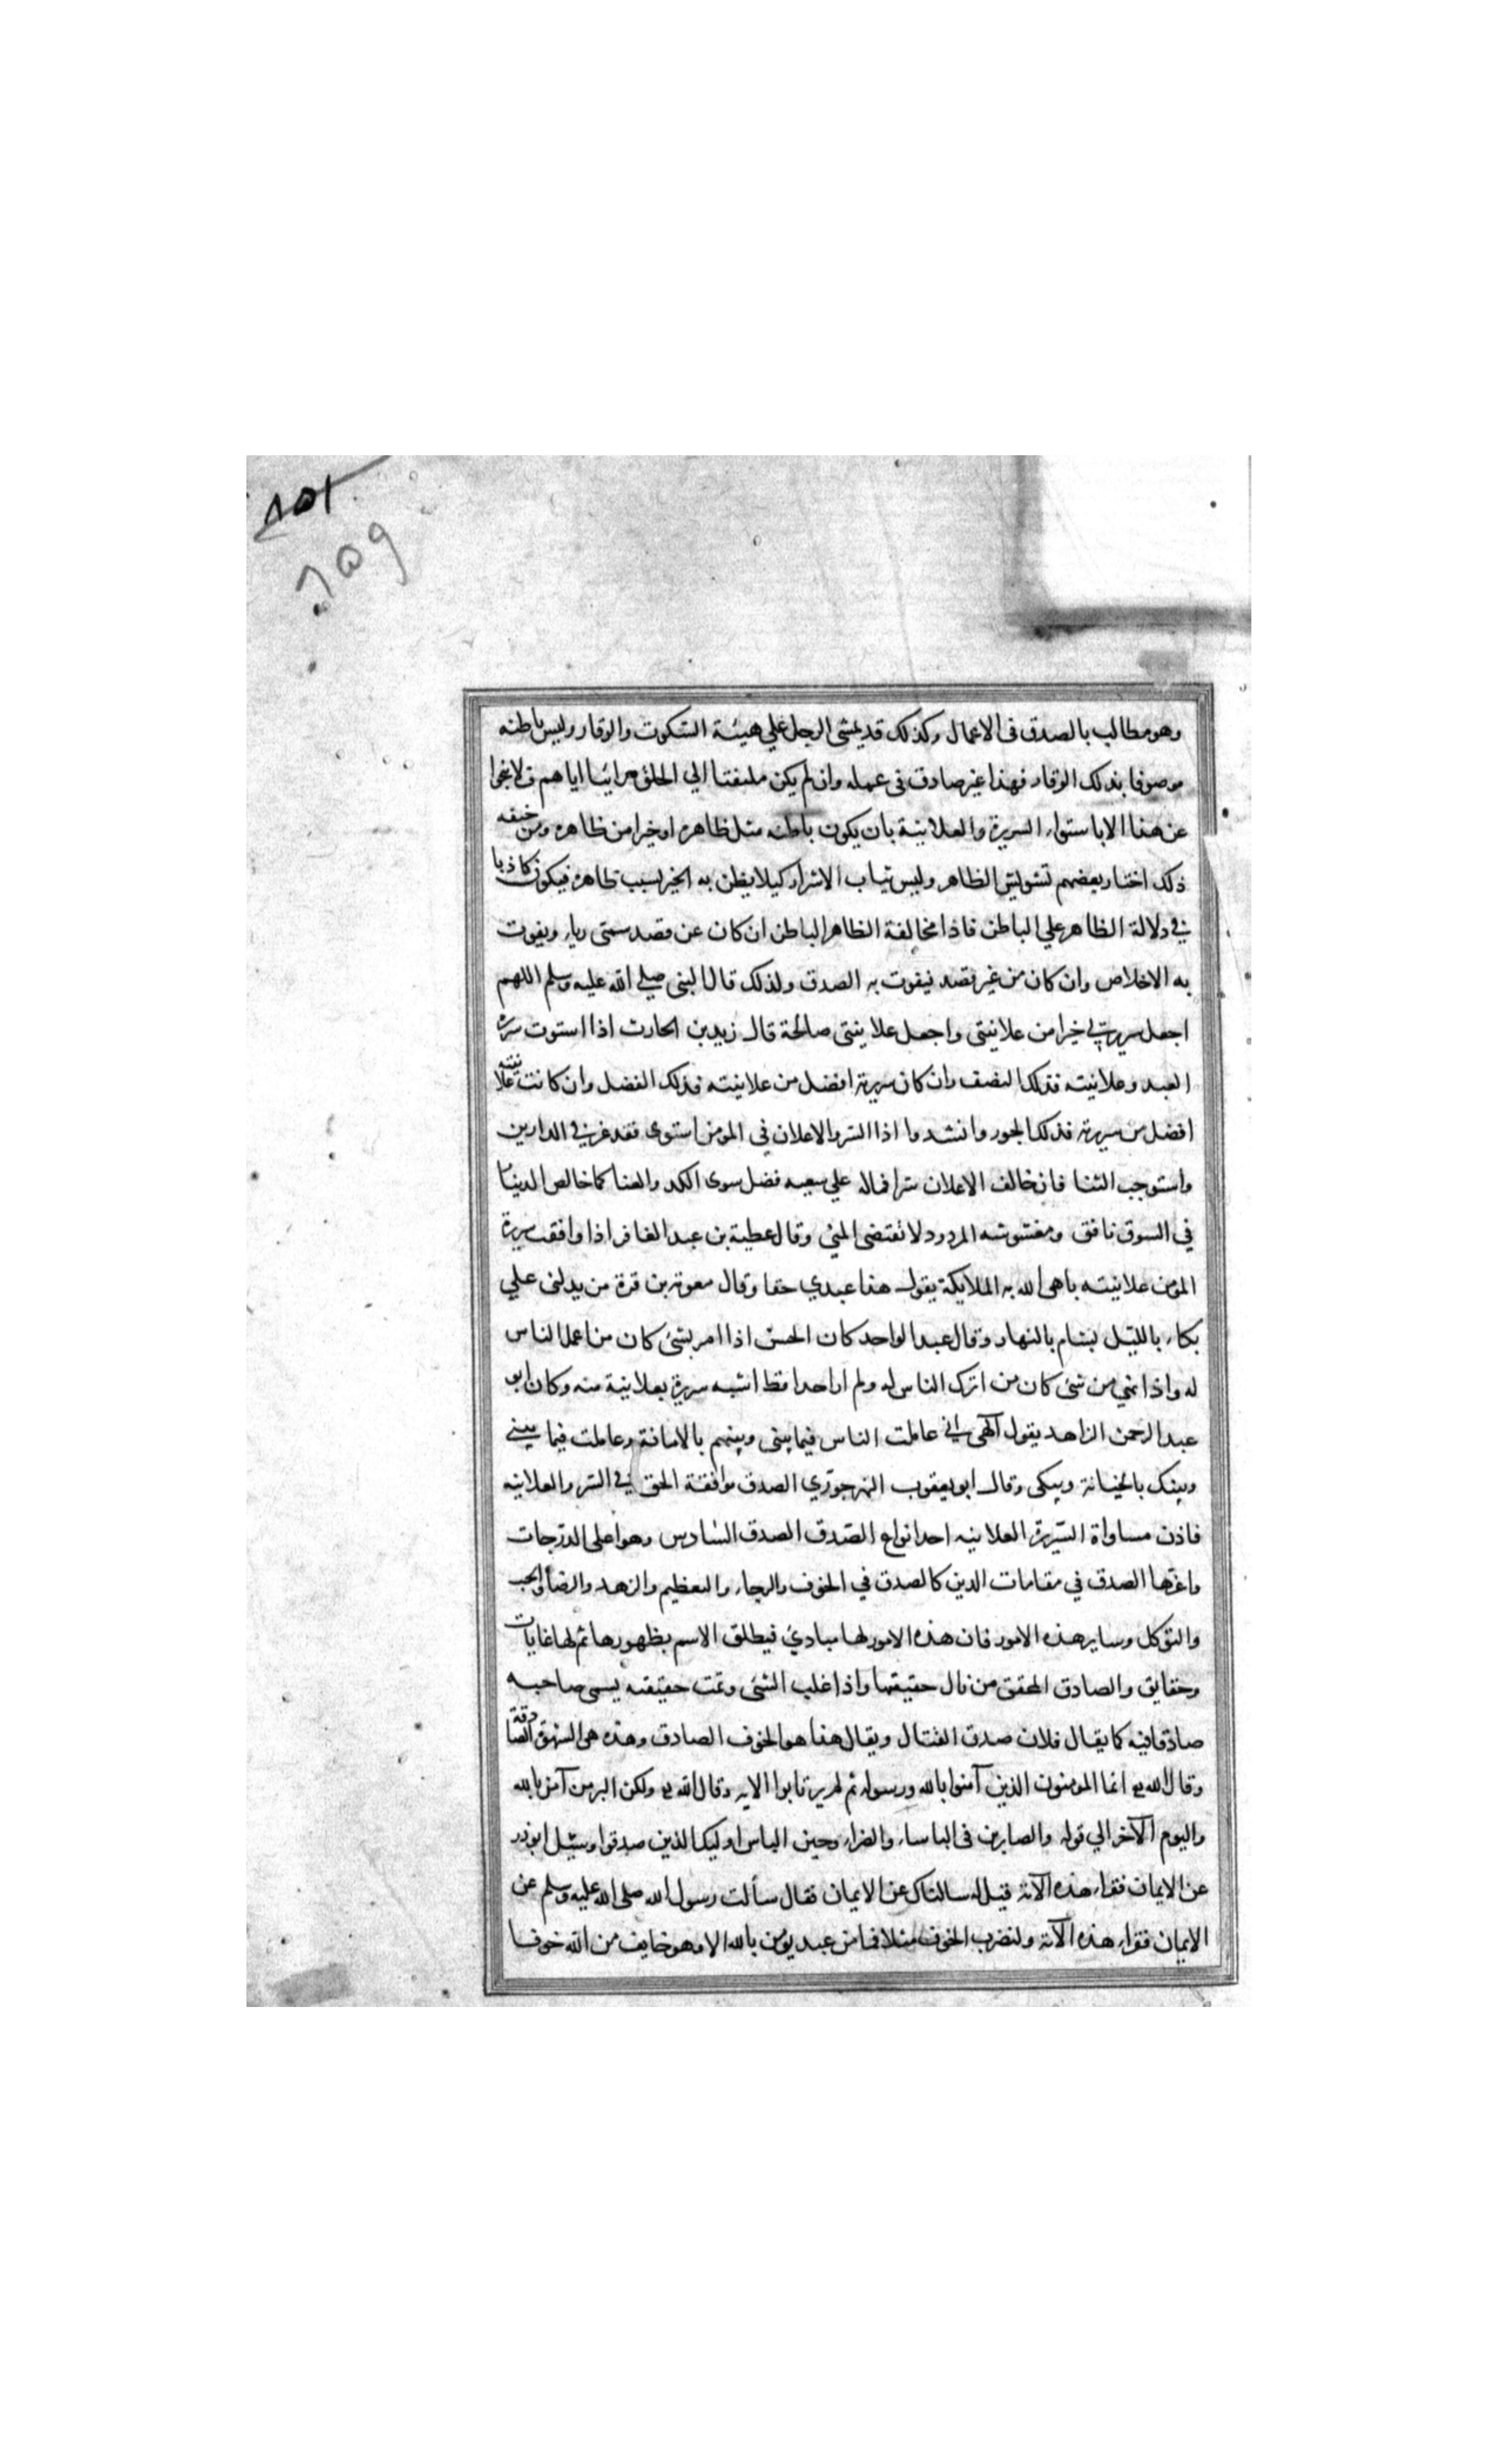 ٨٥١
٦٥٩
وهو مطالب بالصدق فى الاعمال وكذلك قد يمشى الرجل على هيئة السكوت والوقار وليس باطنه
موصوفا بذلك الوقار فهذا غير صادق فى عمله وان لم يكن ملتفتا الي الخلق مرائيا اياهم ولا ينجوا
عن هذا الا باستواء السريرة والعلانية بان يكون باطنه مثل ظاهره او خيرا من ظاهره ومن خيفه
ذلك اختار بعضهم تشويش الظاهر ولبس ثياب الاشرار كيلا يظن به الخير بسبب ظاهره فيكون كاذبا
في دلالة الظاهر علي الباطن فاذا مخالفة الظاهر الباطن ان كان عن قصد سمتى رياء ويفوت
به الاخلاص وان كان من غير قصد فيفوت به الصدق ولذلك قال النبى صلى الله عليه وسلم اللهم
اجعل سريرتي خيرا من علانيتى واجعل علانيتى صالحة قال زيد بن الحارث اذا استوت سريرة
العبد وعلانيته فذلك النصف وان كان سريرته افضل من علانيته فذلك الفضل وان كانت علانيته
افضل من سريرته فذلك الجور وانشدوا اذا السر والاعلان في المومن استوى فقد عز في الدارين
واستوجب الثنا فان خالف الاعلان سرا فماله علي سعيه فضل سوى الكد والعنا كما خالص الدنيا
في السوق نافق ومغشوشه المردود لا تقتضى المني وقال عطية بن عبد الغافر اذا وافقت سريرة
المؤمن علانيته باهى الله به الملايكة يقول هذا عبدي حقا وقال معوية بن قرة من يدلنى علي
بكاء بالليل بسام بالنهار وقال عبد الواحد كان الحسن اذا امر بشئ كان من اعمل الناس
له واذا نهي من شئ كان من اترك الناس له ولم ار احدا قط اشبه سريرة بعلانية منه وكان ابو
عبد الرحمن الزاهد يقول الهى انى عاملت الناس فيما بينى وبينهم بالامانة وعاملت فيما بيني
وبينك بالخيانة ويبكى وقال ابو يعقوب النهرجوري الصدق موافقة الحق في السر والعلانيه
فاذن مساواة السريرة العلانيه احد انواع الصدق الصدق السادس وهو اعلى الدرجات
واعزها الصدق في مقامات الدين كالصدق في الخوف والرجاء والتعظيم والزهد والرضا والحب
والتوكل وساير هذه الامور فان هذه الامور لها مبادئ فيطلق الاسم بظهورها ثم لها غايات
وحقايق والصادق المحقق من نال حقيقتها واذا غلب الشئ وتمت حقيقته يسمى صاحبه
صادقا فيه كما يقال فلان صدق القتال ويقال هذا هو الخوف الصادق وهذه هى الشهوة الصادقة
وقال الله تع انما المومنون الذين آمنوا بالله ورسوله ثم لم يرتابوا الايه وقال الله تع ولكن البر من آمن بالله
واليوم الآخر الي قوله والصابرين فى الباساء والضراء وحين الباس اوليك الذين صدقوا وسئل ابو ذر
عن الايمان فقراء هذه الآية قيل له سالناك عن الايمان فقال سألت رسول الله صلى الله عليه وسلم عن
الايمان فقراء هذه الآية ولنضرب الخوف مثلا فما من عبد يؤمن بالله الا وهو خايف من الله خوفا